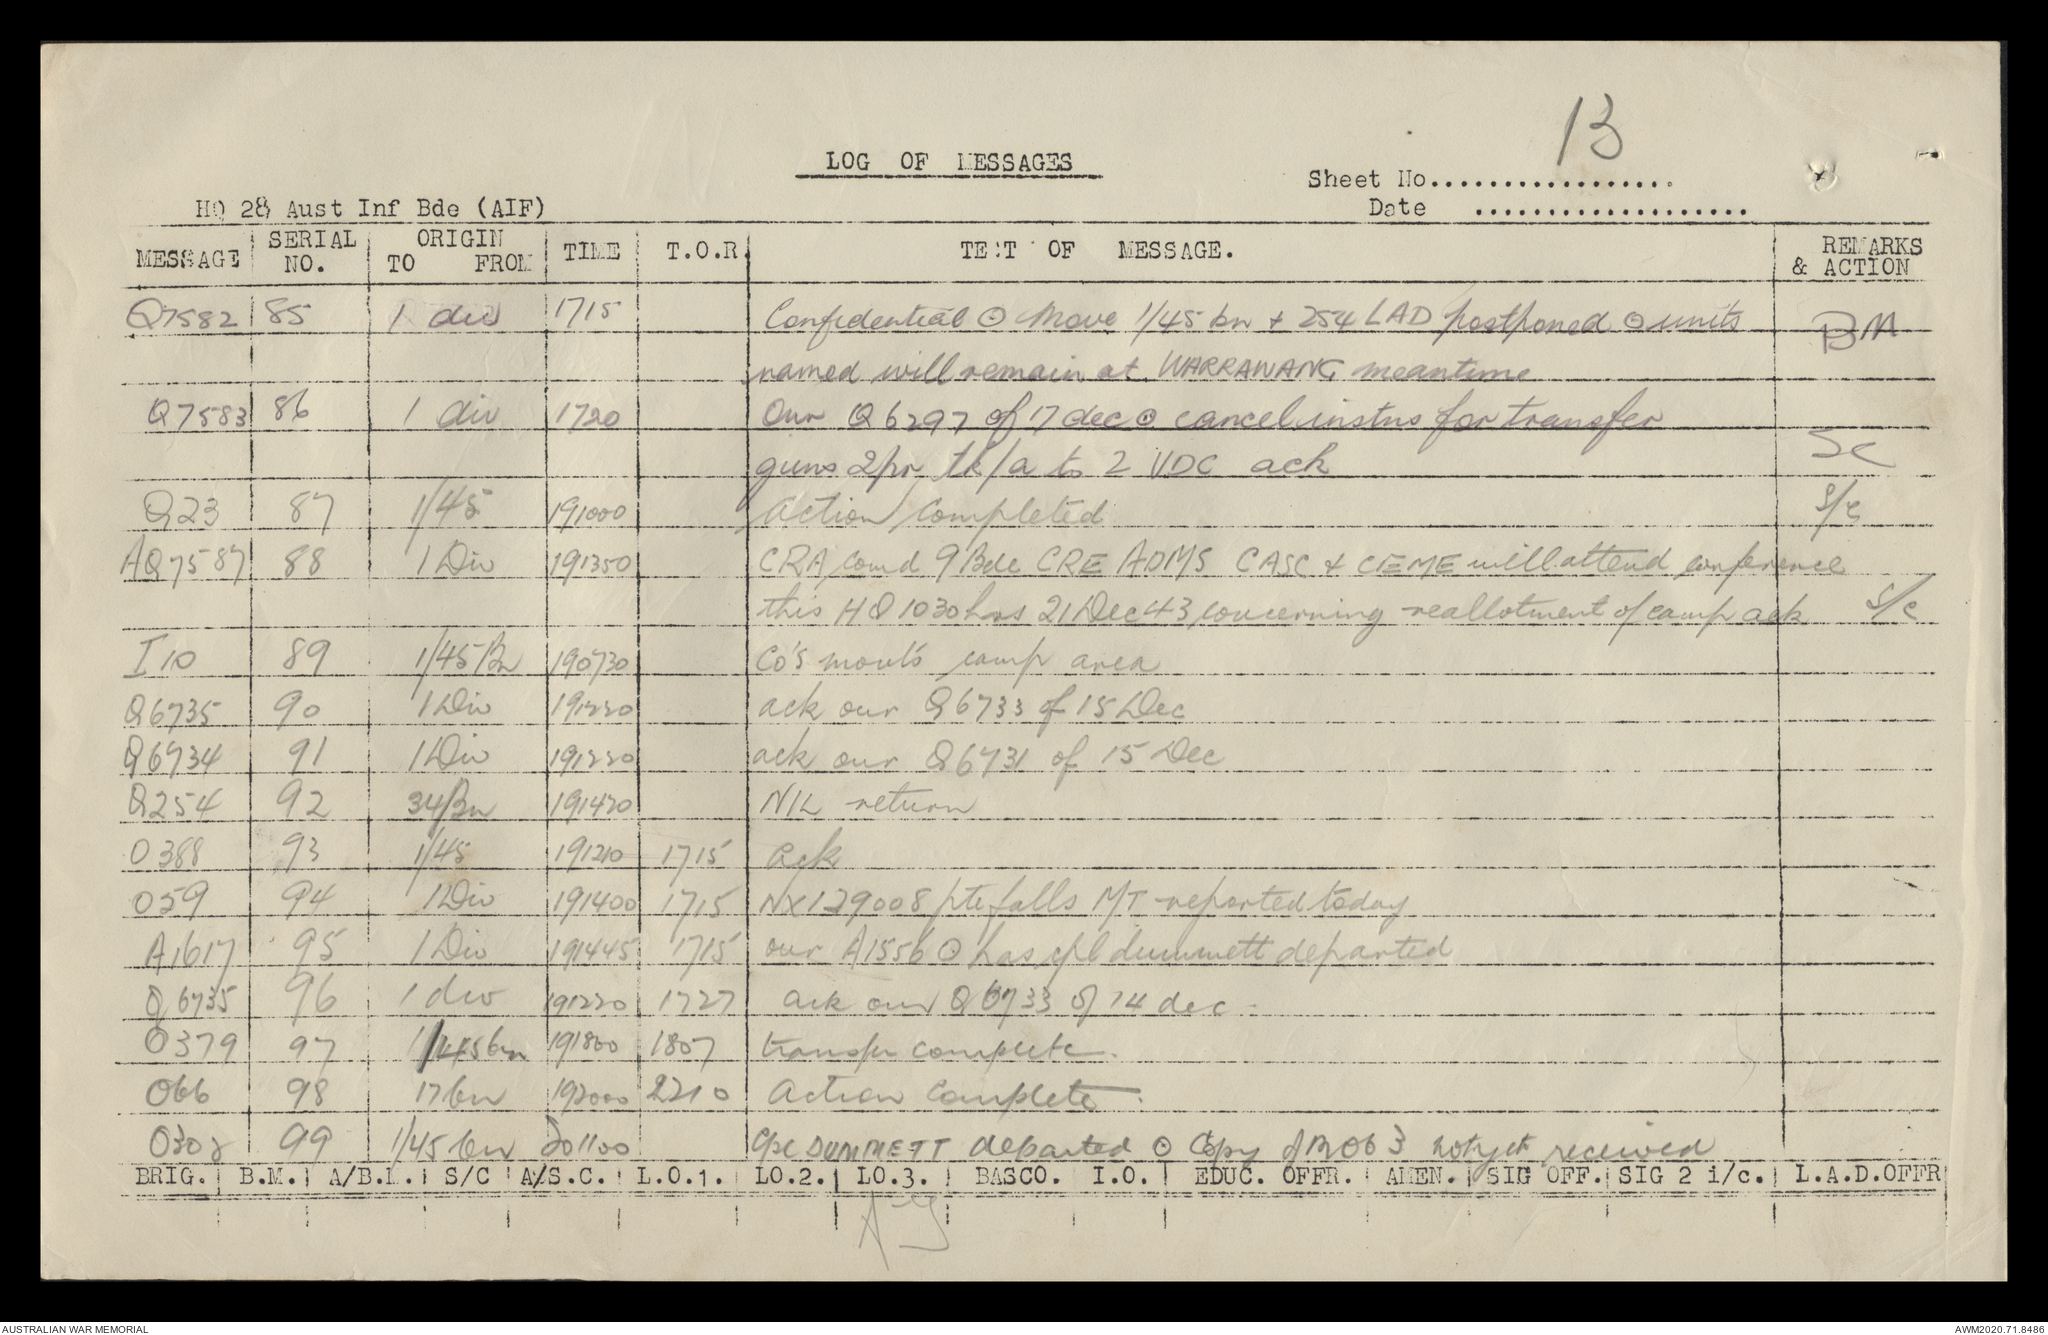 13
LOG OF MESSAGES
Sheet No..................
HQ 28 Aust Inf Bde (AIF)
Date ...................
MESSAGE SERIAL NO. ORIGIN TO FROM TIME T.O.R. TEXT OF MESSAGE. REMARKS & ACTION
Q7582 85 1 div 1715 Confidential ⊙ Move 1/45 bn + 254 LAD postponed ⊙ units BM
named will remain at WARRAWANG meantime
Q7583 86 1 div 1720 Our Q6297 of 17 dec ⊙ cancel instns for transfer
guns 2pr tk/a to 2 VDC ack SC
Q23 87 1/45 191000 Action Completed S/C
AQ7587 88 1 Div 191350 CRA comd 9 Bde CRE ADMS CASC & CEME will attend conference
this HQ 1030 hrs 21 Dec 43 concerning reallotment of camp ack S/C
I 10 89 1/45 Bn 190730 Co's camp area
Q6735 90 1 Div 191220 ack our Q6733 of 15 Dec
Q6734 91 1 Div 191220 ack our Q6731 of 15 Dec
Q254 92 34/Bn 191420 NIL return
O388 93 1/45 191210 1715 ack
O59 94 1 Div 191400 1715 NX129008 pte falls M/T reported today
A1617 95 1 Div 191445 1715 our A1556 ⊙ has cpl dummett departed
Q6735 96 1 div 191220 1727 ack our Q6733 of 14 dec
O379 97 1/45 bn 191800 1807 transfer complete.
O66 98 17 bn 192000 2210 Action Complete.
99 1/45 bn 201100 Cpl DUMMETT departed ⊙ Copy of not yet received
BRIG. B.M. A/B.M. S/C A/S.C. L.O.1. LO.2. LO.3. BASCO. I.O. EDUC. OFFR. AMEN. SIG OFF. SIG 2 i/c. L.A.D.OFFR
AUSTRALIAN WAR MEMORIAL
AWM2020.71.8486